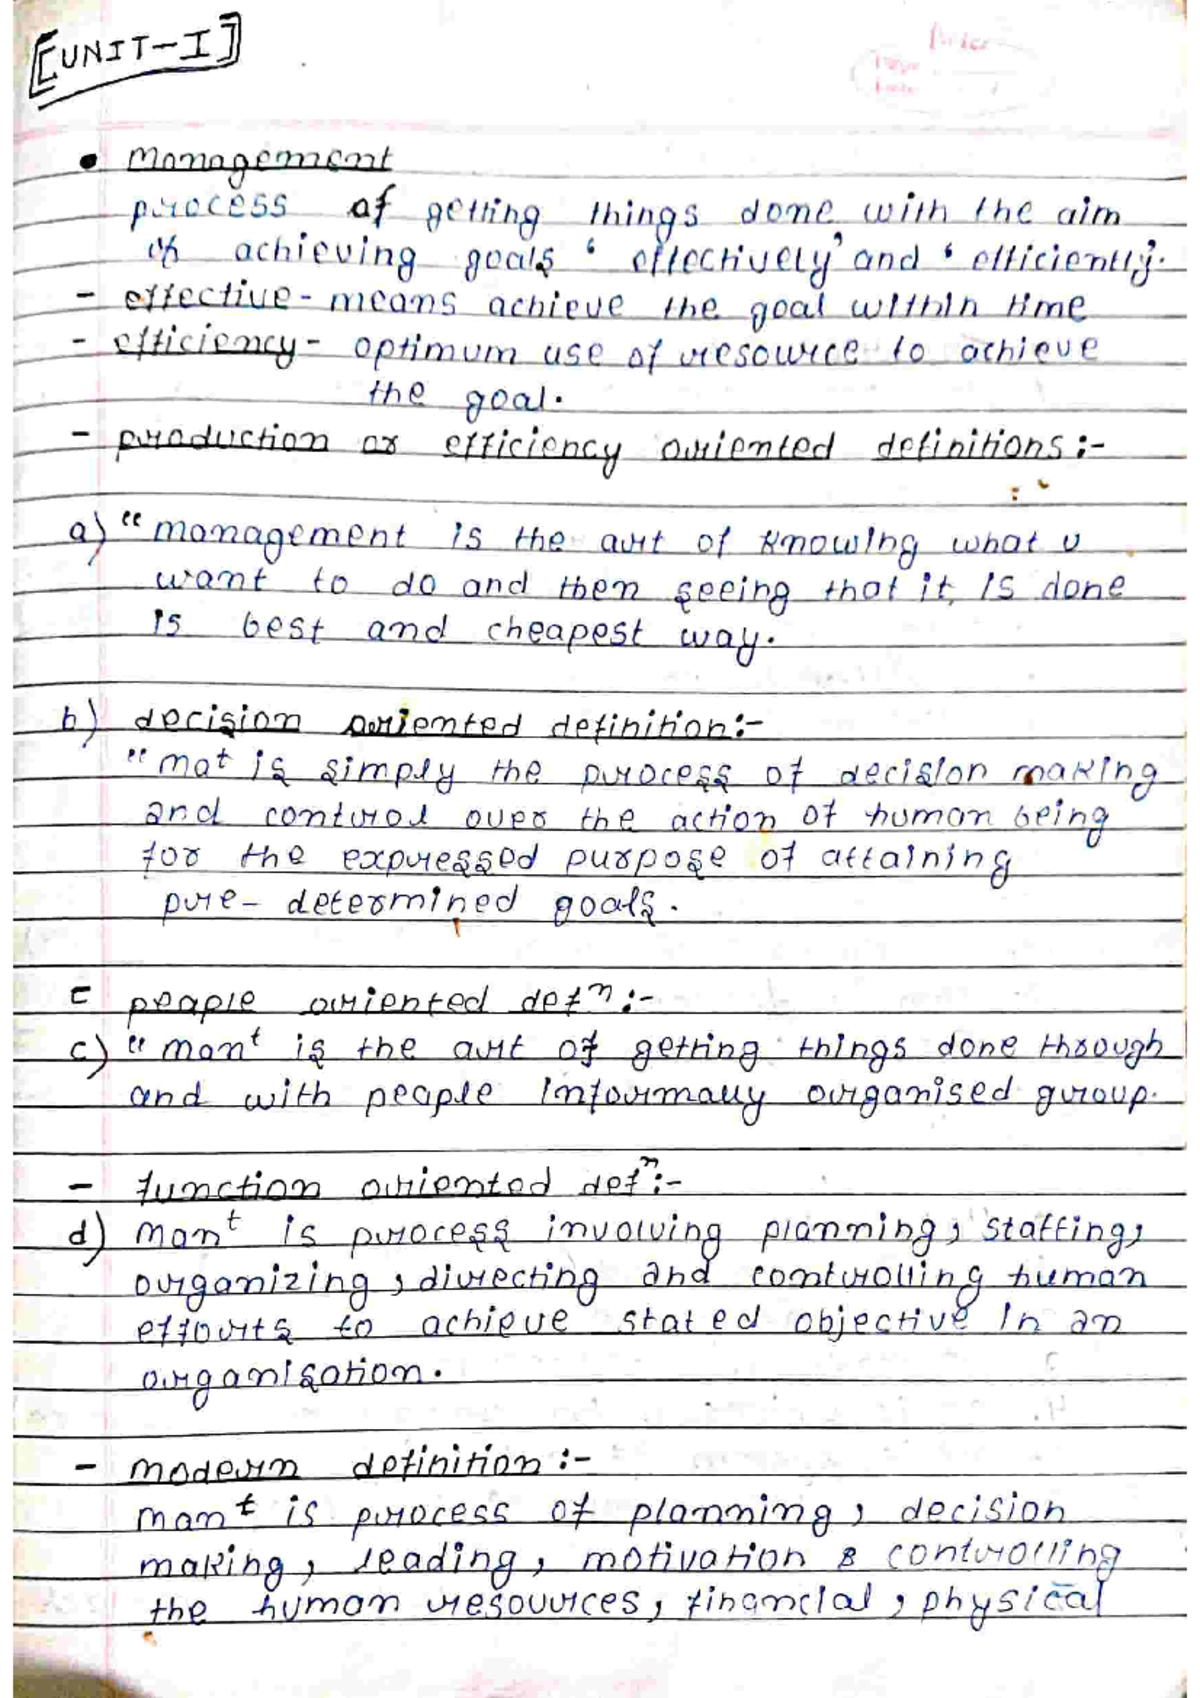 [UNIT-I]
• management
process of getting things done with the aim
of achieving goals 'effectively' and 'efficiently'.
- effective - means achieve the goal within time
- efficiency - optimum use of resource to achieve
the goal.
- production or efficiency oriented definitions:-
a) "management is the art of knowing what u
want to do and then seeing that it is done
is best and cheapest way.
b) decision oriented definition:-
"mat is simply the process of decision making
and control over the action of human being
for the expressed purpose of attaining
pre-determined goals.
- people oriented defn:-
c) "mant is the art of getting things done through
and with people informally organised group.
- function oriented defn:-
d) mant is process involving planning, staffing,
organizing, directing and controlling human
efforts to achieve stated objective in an
organisation.
- modern definition:-
mant is process of planning, decision
making, leading, motivation & controlling
the human resources, financial, physical